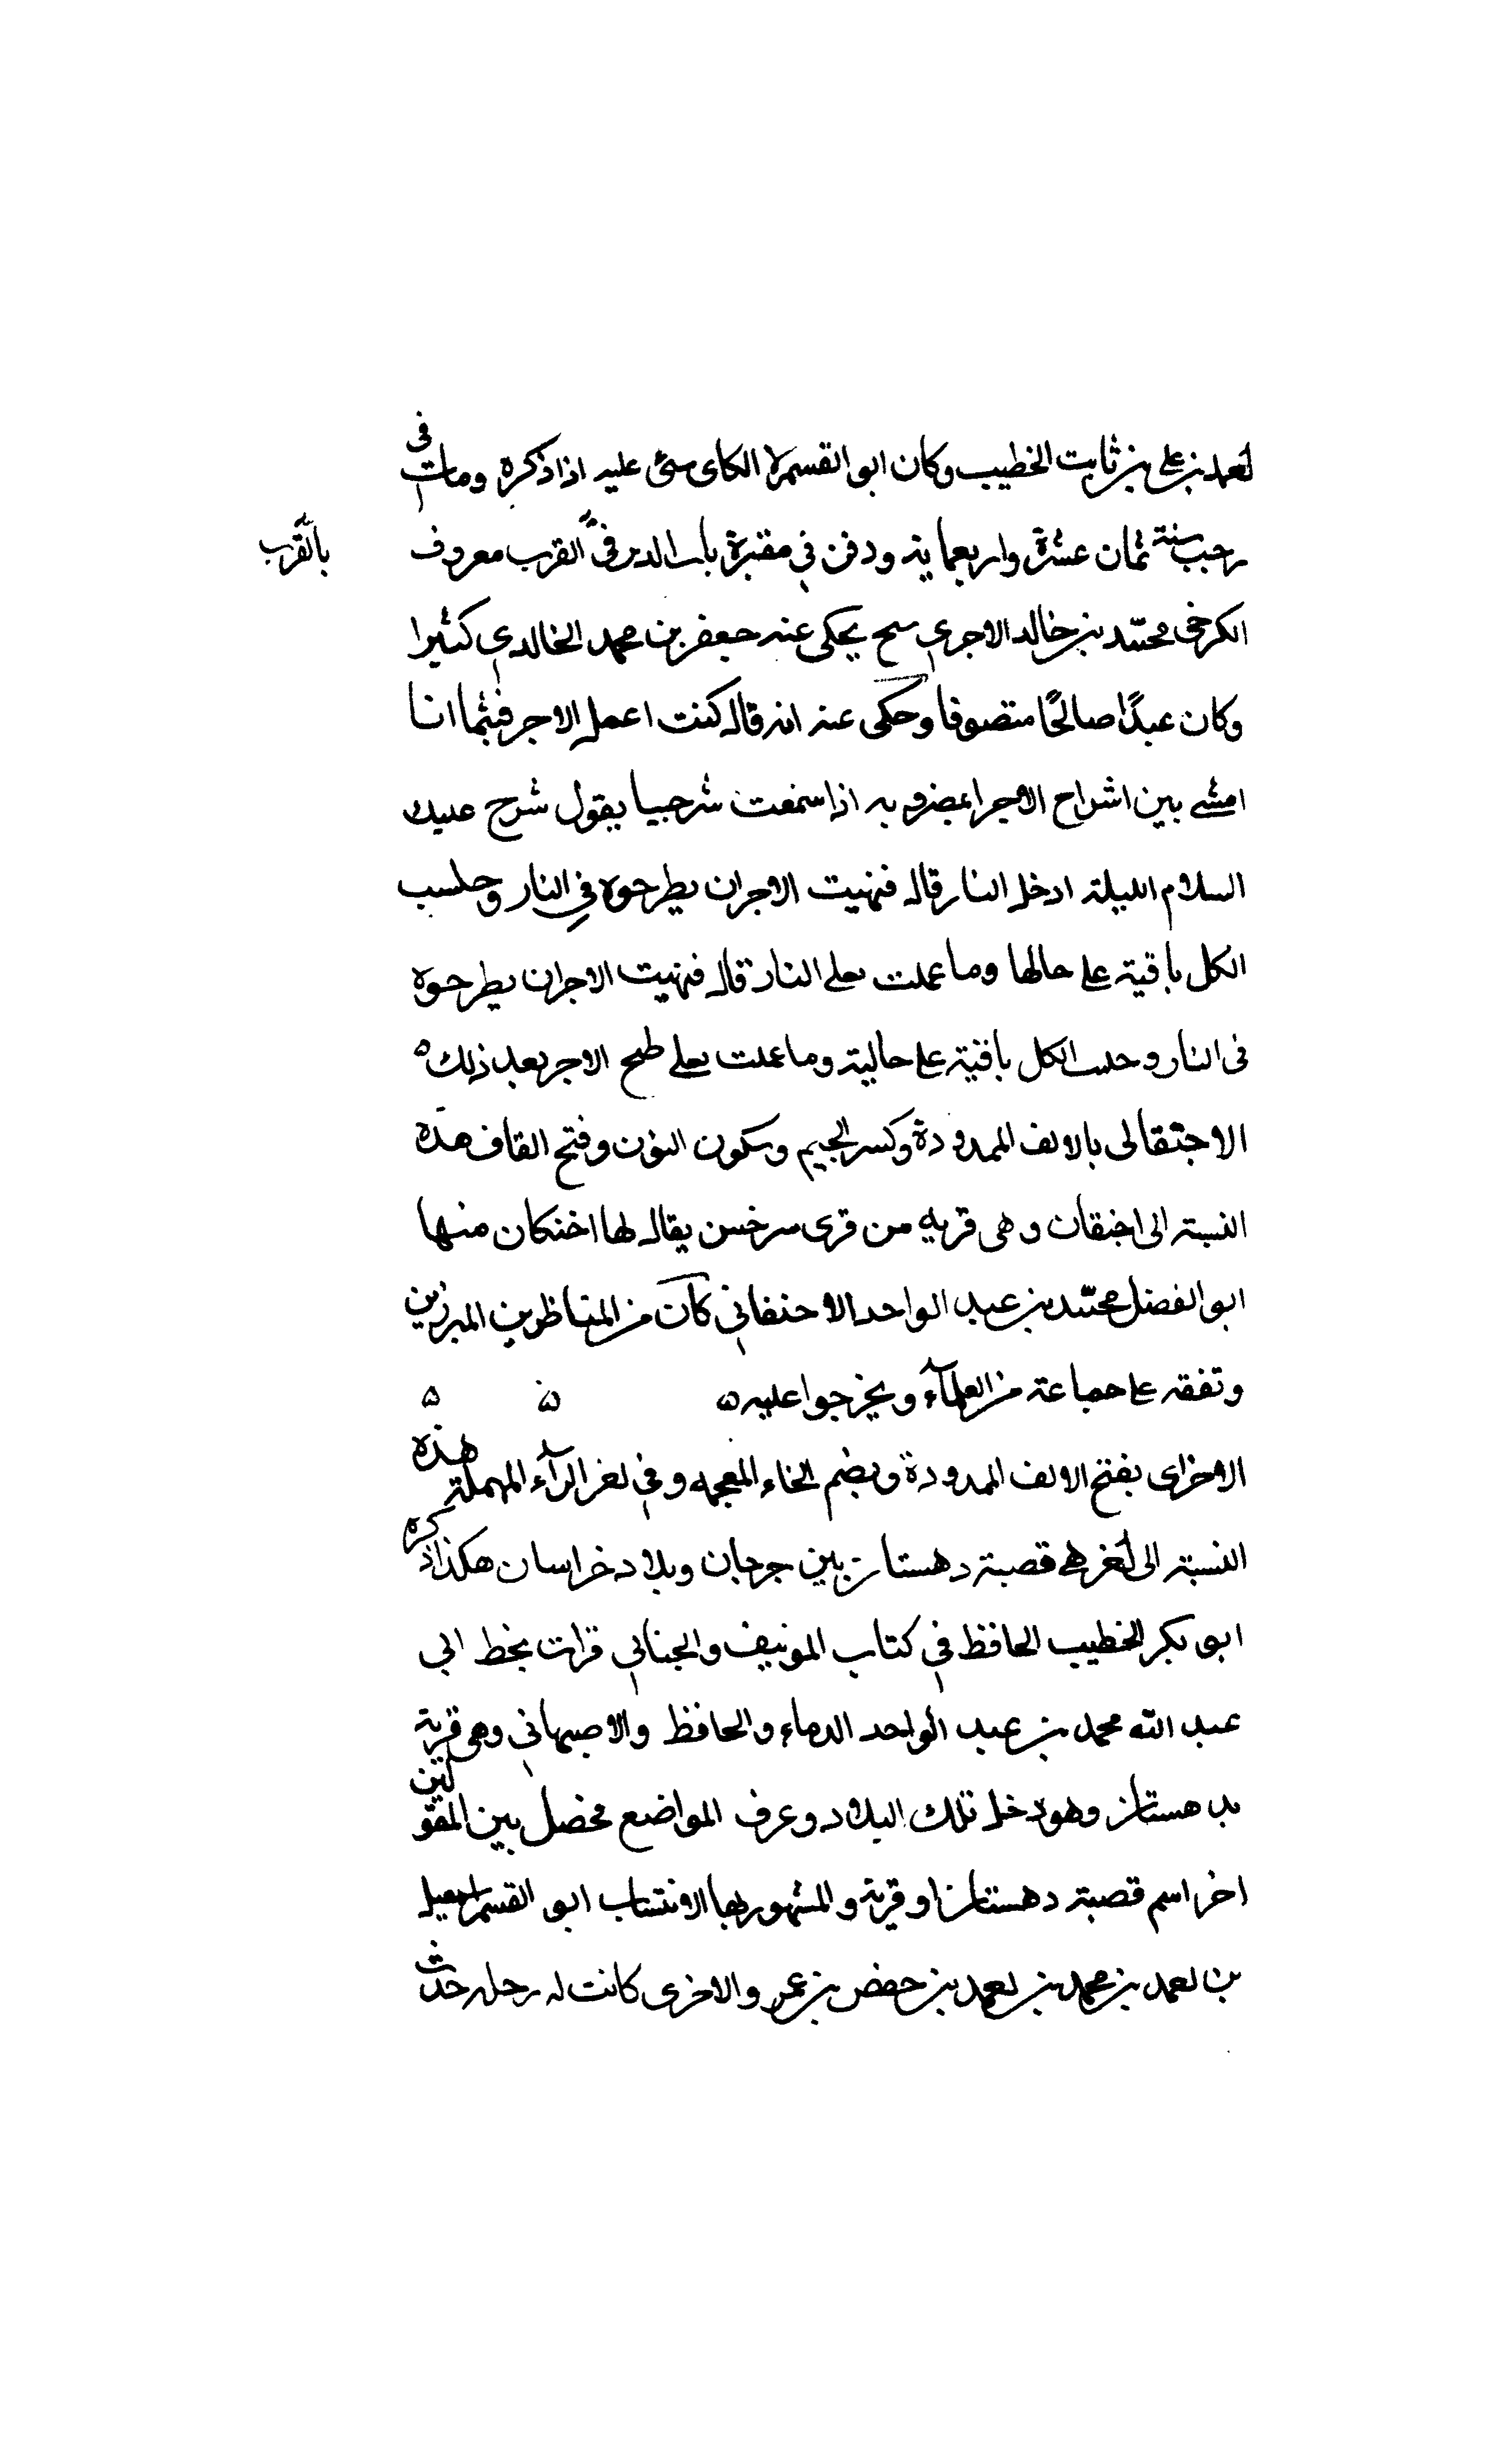 احمد بن علي بن ثابت الخطيب وكان ابو القسم الالكاى يثنى عليه اذا ذكره ومات فى
رجب سنة ثمان عشرة واربعماية ودفن في مقبرة باب الدير فى القرب معروف
بالقرب
الكرخى محمد بن خالد الاجرى يحكى عنه جعفر بن محمد الخالدي كثيرا
وكان عبدًا صالحًا متصوفا وحكى عنه انه قال كنت اعمل الاجر فبينما انا
امشى بين اشراح الاجر المضروبه اذا سمعت شرجبيا يقول شرح عليك
السلام الليلة ادخل النار قال فنهيت الاجران يطرحوه في النار وحلسب
الكل باقية على حالها وما عملت على النار قال فنهيت الاجران يطرحوه
فى النار وحلس الكل باقية على حالية وما عملت على طبخ الاجر بعد ذلك ه
الاجنقالى بالالف الممدودة وكسر الجيم وسكون النون وفتح القاف هذه
النسبة الى اجنقان وهى قريه من قرى سرخس يقال لها اخنكان منها
ابو الفضل محمد بن عبد الواحد الاحنفاني كان من المناظرين المبرزين
وتفقه على جماعة من العلمآء ويخرجوا عليه ه ه ه
الاخراى بفتح الالف الممدودة وبضم الخاء المعجمه وفي اخر الرآء المهملة هذه
النسبة الى اخر هى قصبة دهستان بين جرجان وبلاد خراسان هكذا ذكره
ابو بكر الخطيب الحافظ في كتاب المونيف والجنابي قرات بخط ابي
عبد الله محمد بن عبد الواحد الدماء والحافظ والاصبهاني وهى قرية
بدهستان وهو دخل تلك البلاد وعرف المواضع فحصل بين المقولتين
اخر اسم قصبة دهستان او قرية والمشهور بها الانتساب ابو القسم اسمعيل
بن احمد بن محمد بن احمد بن حفص بن عمر والاخرى كانت له رحله حدث